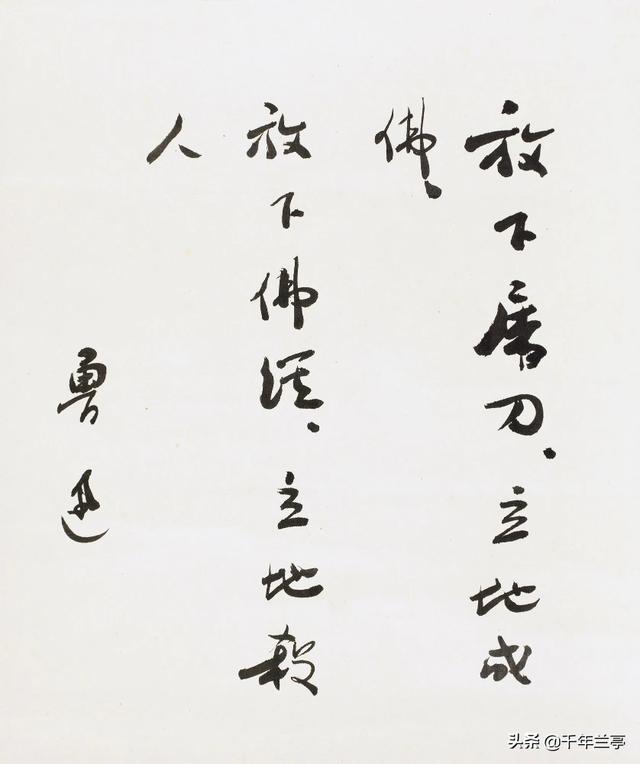 放下屠刀、立地成
佛、
放下佛經、立地殺
人
魯迅
头条 @千年兰亭